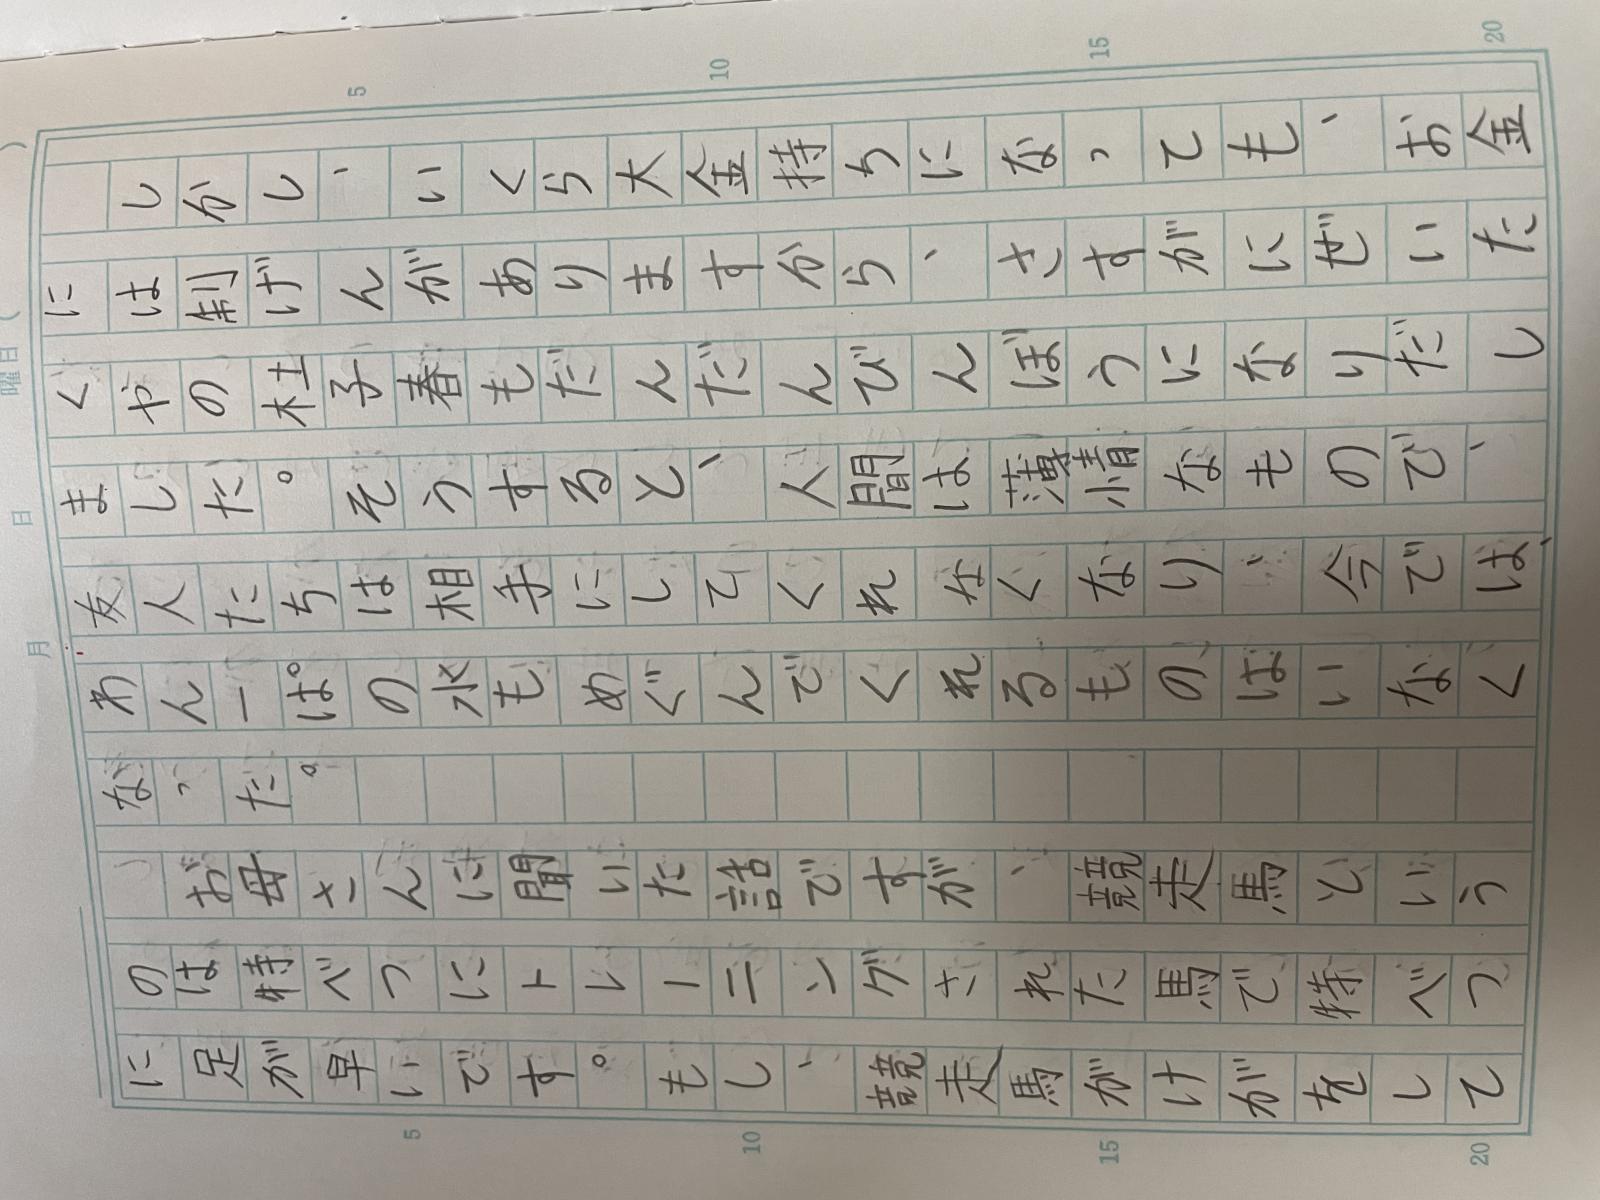 月　日　曜日（　）
5
10
15
20
　しかし、いくら大金持ちになっても、お金
には制げんがありますから、さすがにぜいた
くやの杜子春もだんだんびんぼうになりだし
ました。そうすると、人間は薄情なもので、
友人たちは相手にしてくれなくなり、今では、
わん一ぱの水もめぐんでくれるものはいなく
なった。
　お母さんに聞いた話ですが、競走馬という
のは特べつにトレーニングされた馬で特べつ
に足が早いです。もし、競走馬がけがをして
5
10
15
20